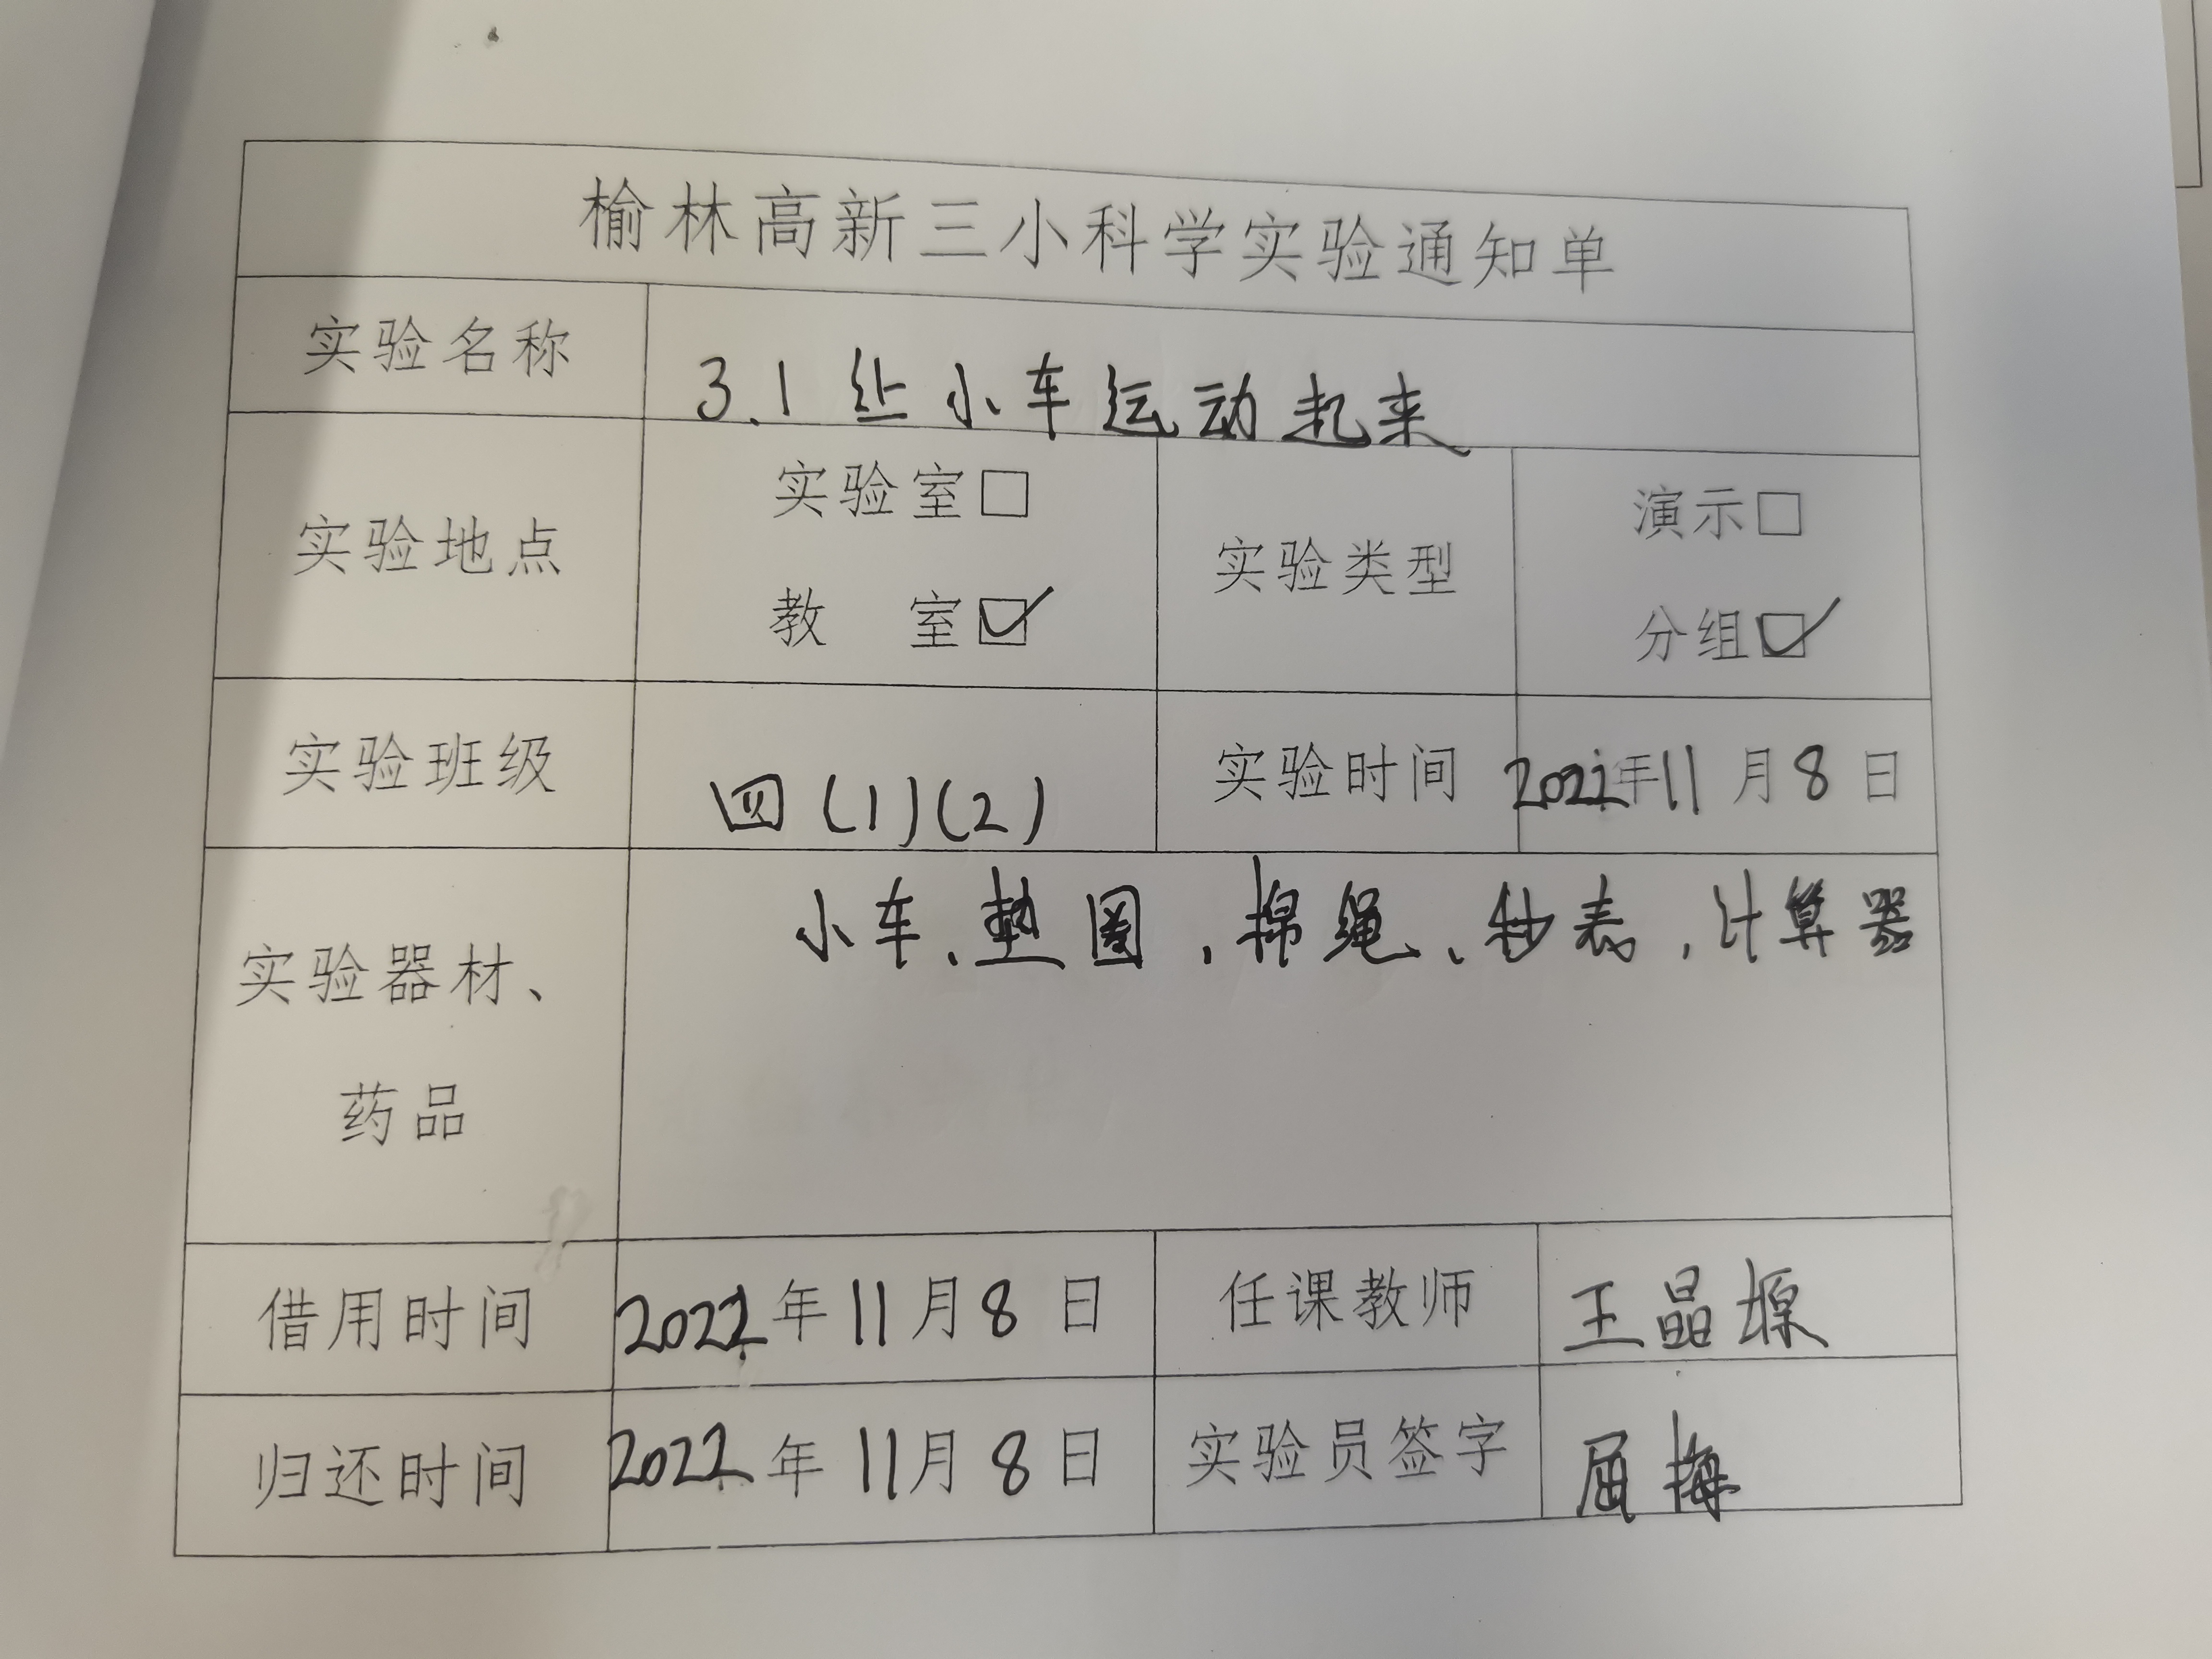 榆林高新三小科学实验通知单
实验名称 3.1 让小车运动起来
实验地点 实验室□ 教 室☑ 实验类型 演示□ 分组☑
实验班级 四(1)(2) 实验时间 2022年11月8日
实验器材、药品 小车、垫圈、棉绳、秒表、计算器
借用时间 2022年11月8日 任课教师 王晶塬
归还时间 2022年11月8日 实验员签字 屈梅